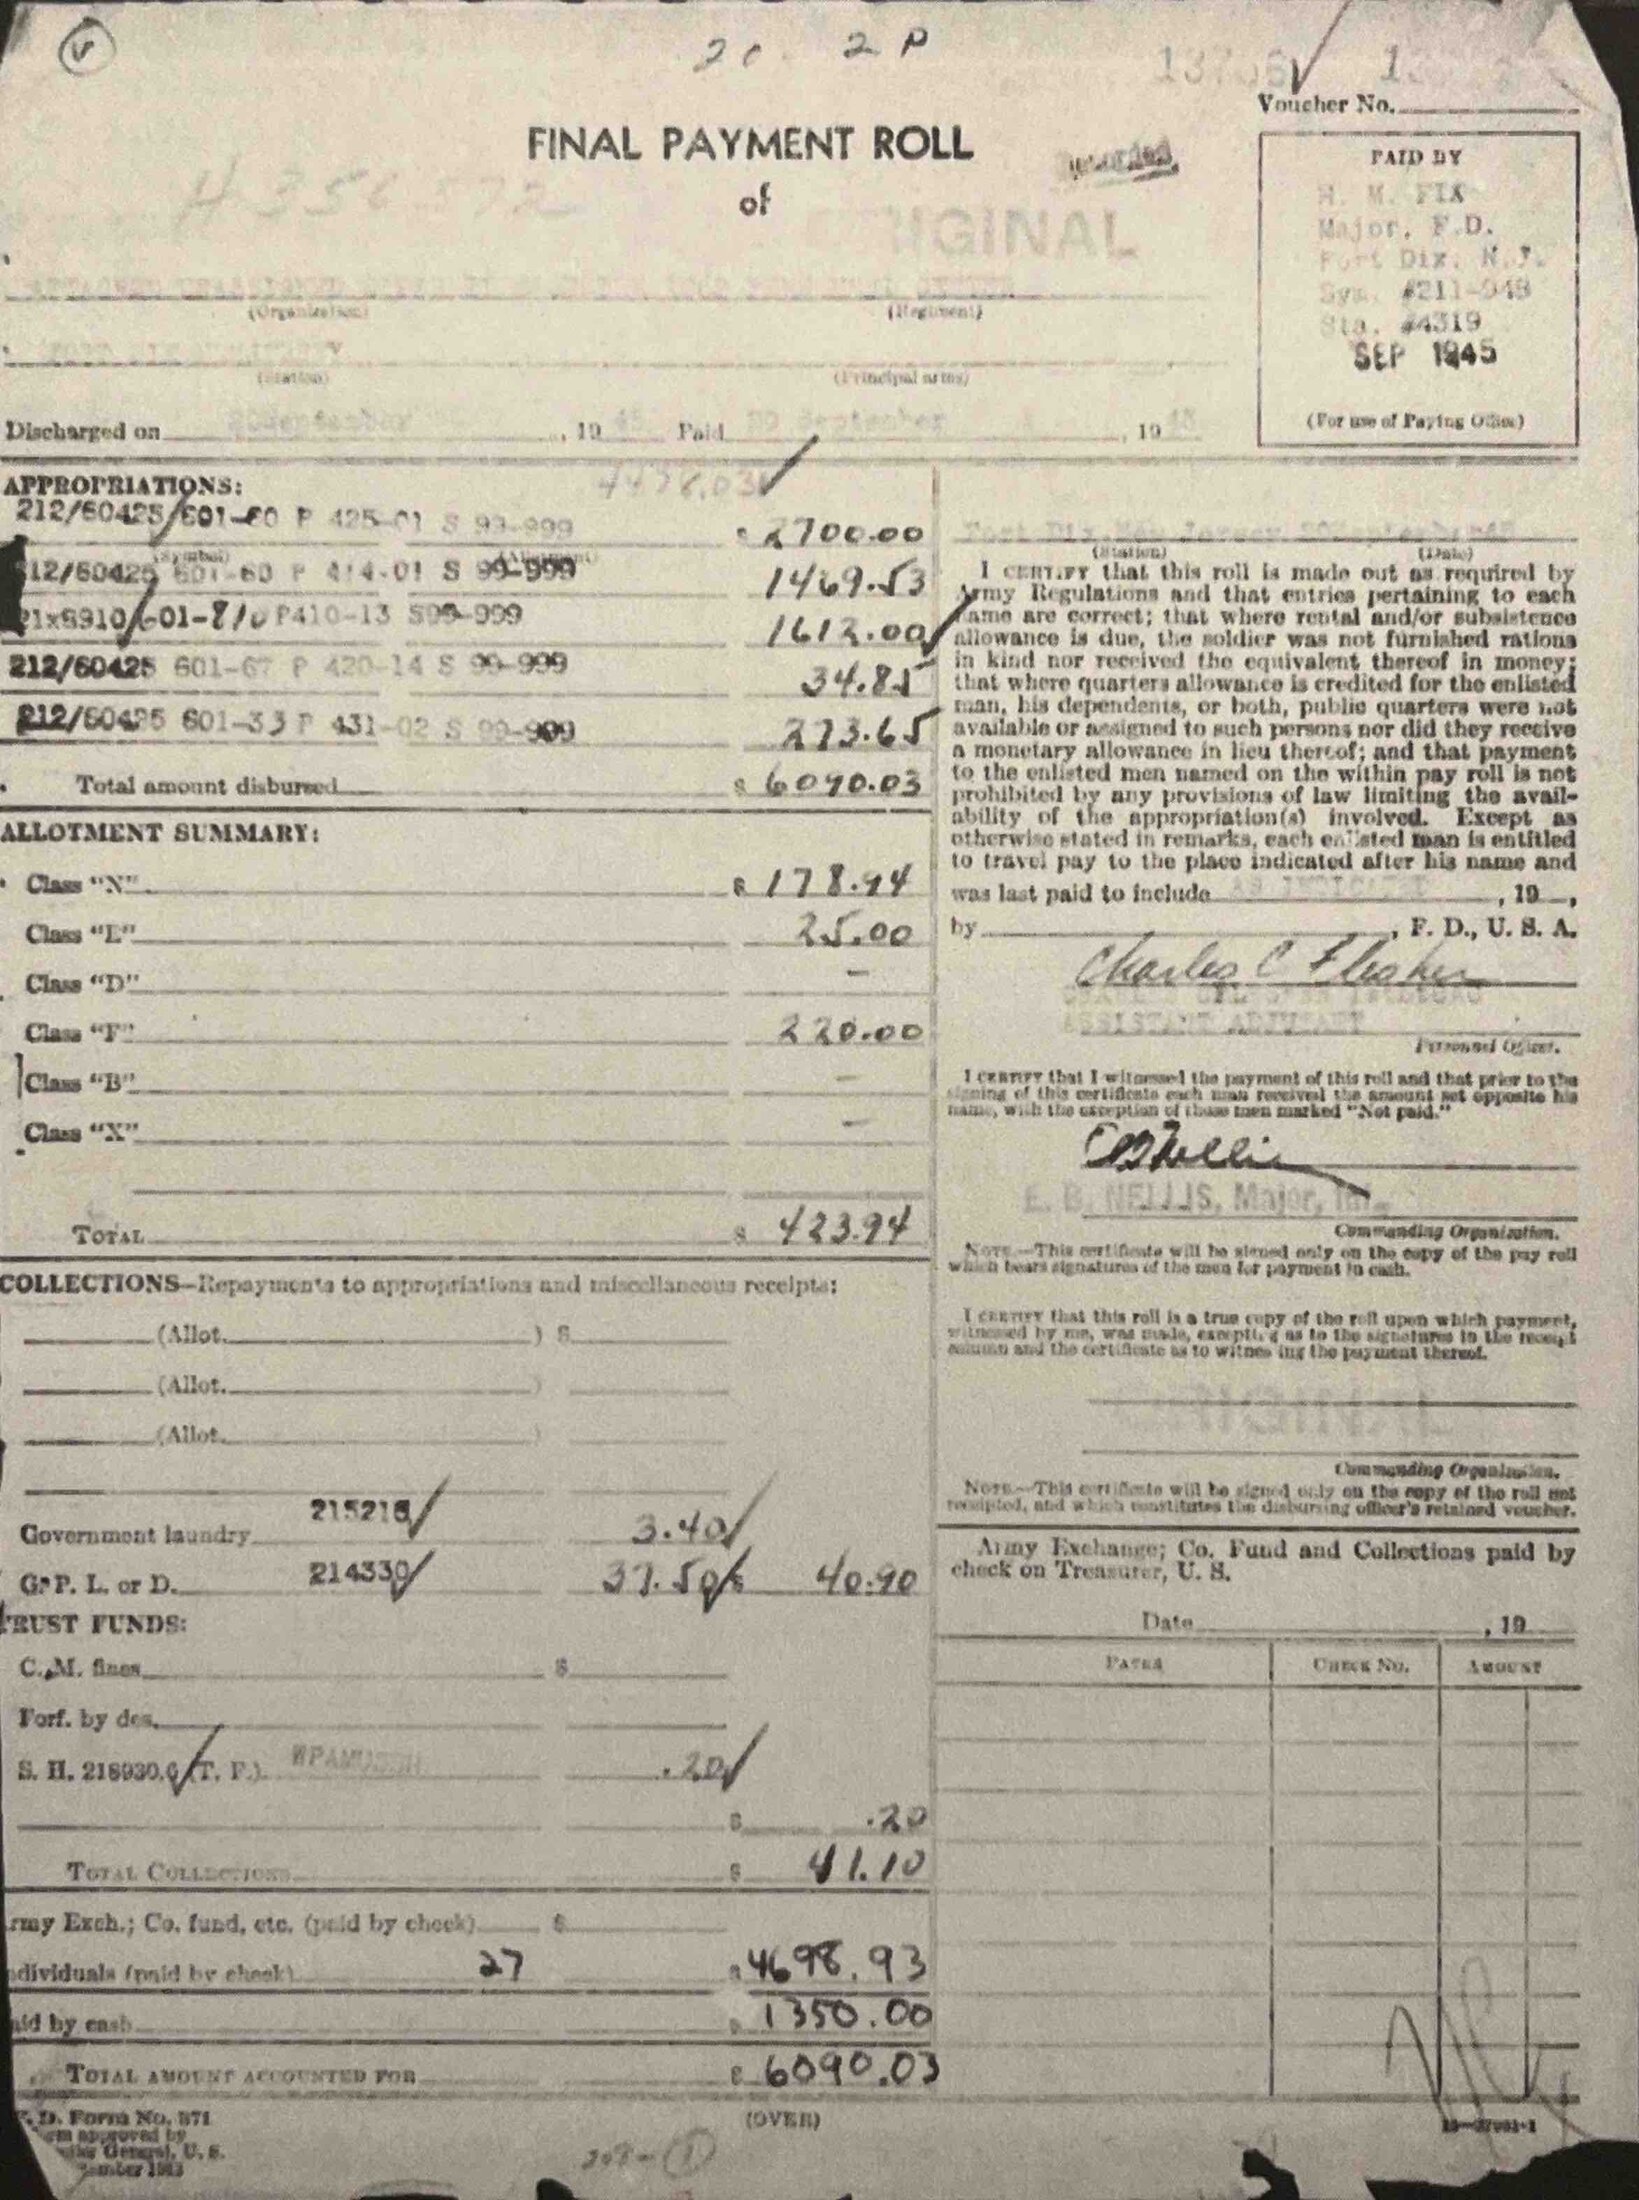 2 P
Voucher No.
FINAL PAYMENT ROLL
of
PAID BY
H. M. FIX
Major, F.D.
Fort Dix, N.J.
Sym. #211-948
Sta. #4319
SEP 1945
(For use of Paying Office)
(Organization) (Regiment)
(Station) (Principal arms)
Discharged on , 19 45 Paid September , 19 45
APPROPRIATIONS:
212/60425 601-60 P 425-01 S 99-999 $ 2700.00
(Symbol) (Allotment)
212/60425 601-60 P 414-01 S 99-999 1469.53
21x8910 601-810 P410-13 S99-999 1612.00
212/60425 601-67 P 420-14 S 99-999 34.85
212/60425 601-33 P 431-02 S 99-999 273.65
Total amount disbursed $ 6090.03
ALLOTMENT SUMMARY:
Class "N" $ 178.94
Class "E" 25.00
Class "D" –
Class "F" 220.00
Class "B" –
Class "X" –
TOTAL $ 423.94
COLLECTIONS—Repayments to appropriations and miscellaneous receipts:
(Allot. ) $
(Allot. )
(Allot. )
Government laundry 215216 3.40
G. P. L. or D. 214330 37.50 $ 40.90
TRUST FUNDS:
C. M. fines $
Forf. by des.
S. H. 218930.6 (T. F.) .20
$ .20
TOTAL COLLECTIONS $ 41.10
Army Exch.; Co. fund, etc. (paid by check) $
Individuals (paid by check) 27 $ 4698.93
Paid by cash $ 1350.00
TOTAL AMOUNT ACCOUNTED FOR $ 6090.03
Fort Dix, New Jersey
(Station) (Date)
I CERTIFY that this roll is made out as required by
Army Regulations and that entries pertaining to each
name are correct; that where rental and/or subsistence
allowance is due, the soldier was not furnished rations
in kind nor received the equivalent thereof in money;
that where quarters allowance is credited for the enlisted
man, his dependents, or both, public quarters were not
available or assigned to such persons nor did they receive
a monetary allowance in lieu thereof; and that payment
to the enlisted men named on the within pay roll is not
prohibited by any provisions of law limiting the avail-
ability of the appropriation(s) involved. Except as
otherwise stated in remarks, each enlisted man is entitled
to travel pay to the place indicated after his name and
was last paid to include AS INDICATED , 19 ,
by , F. D., U. S. A.
Charles C
ASSISTANT ADJUTANT
Personnel Officer.
I CERTIFY that I witnessed the payment of this roll and that prior to the
signing of this certificate each man received the amount set opposite his
name, with the exception of those men marked "Not paid."
E B Nellis
E. B. NELLIS, Major, Inf.
Commanding Organization.
NOTE.—This certificate will be signed only on the copy of the pay roll
which bears signatures of the men for payment in cash.
I CERTIFY that this roll is a true copy of the roll upon which payment,
witnessed by me, was made, excepting as to the signatures in the receipt
column and the certificate as to witnessing the payment thereof.
Commanding Organization.
NOTE.—This certificate will be signed only on the copy of the roll not
receipted, and which constitutes the disbursing officer's retained voucher.
Army Exchange; Co. Fund and Collections paid by
check on Treasurer, U. S.
Date , 19
PAYEE CHECK NO. AMOUNT
Form No. 371
approved by
General, U. S.
(OVER)